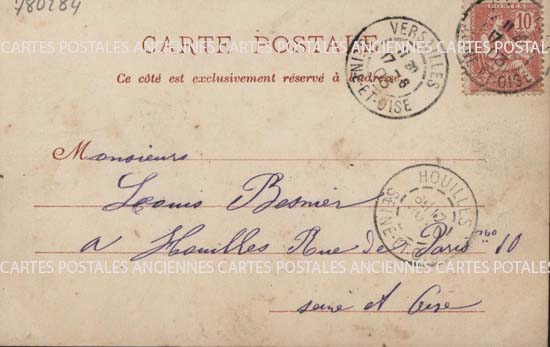 780284
CARTE POSTALE
Ce côté est exclusivement réservé à l'adresse
VERSAILLES
SEINE-ET-OISE
10
POSTES
ET-OISE
Monsieurs
Louis Besnier
a Houilles Rue de Paris 10
seine et Oise
HOUILLES
SEINE
CARTES POSTALES ANCIENNES CARTES POSTALES ANCIENNES CARTES POSTALES
CARTES POSTALES ANCIENNES CARTES POSTALES ANCIENNES CARTES POTALES